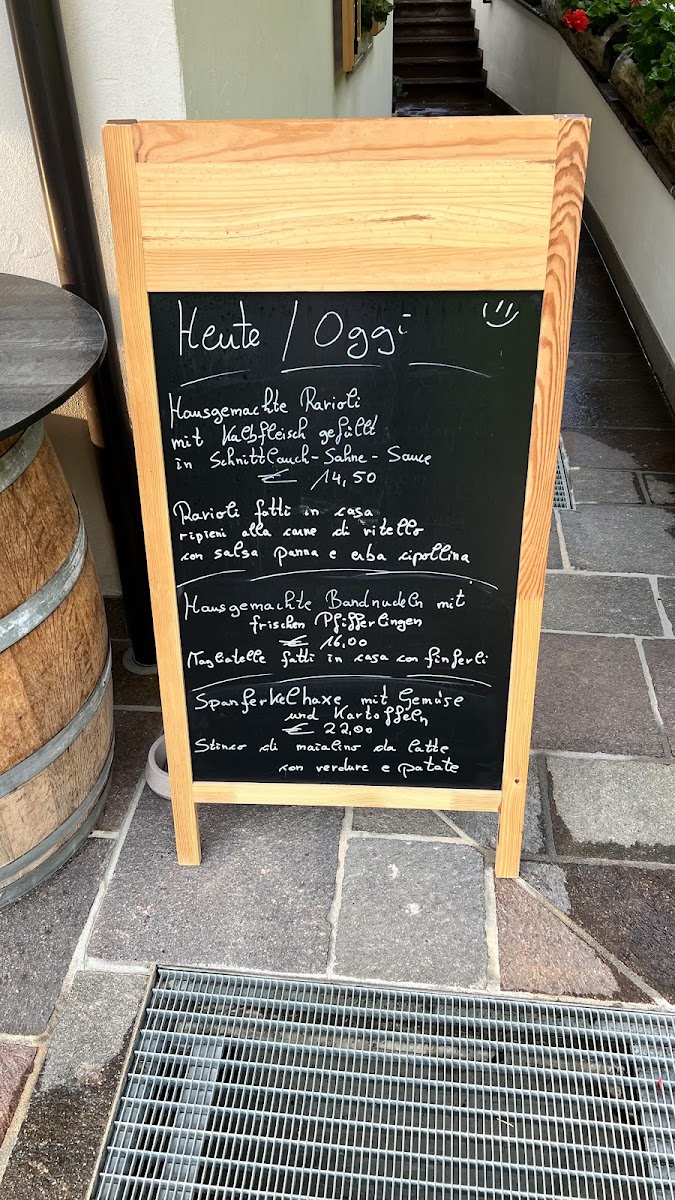 Heute / Oggi
Hausgemachte Ravioli
mit Kalbfleisch gefüllt
in Schnittlauch-Sahne-Sauce
€ 14,50
Ravioli fatti in casa
ripieni alla carne di vitello
con salsa panna e erba cipollina
Hausgemachte Bandnudeln mit
frischen Pfifferlingen
€ 16,00
Tagliatelle fatti in casa con finferli
Spanferkelhaxe mit Gemüse
und Kartoffeln
€ 22,00
Stinco di maialino da latte
con verdure e patate